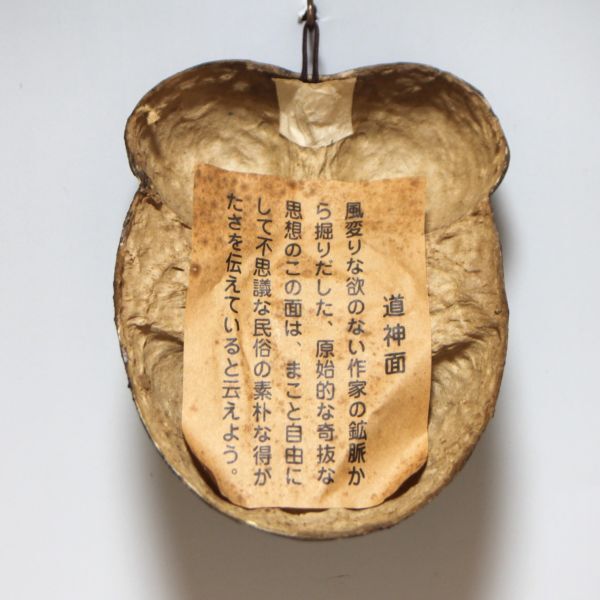 道神面
風変りな欲のない作家の鉱脈か
ら掘りだした、原始的な奇抜な
思想のこの面は、まこと自由に
して不思議な民俗の素朴な得が
たさを伝えていると云えよう。